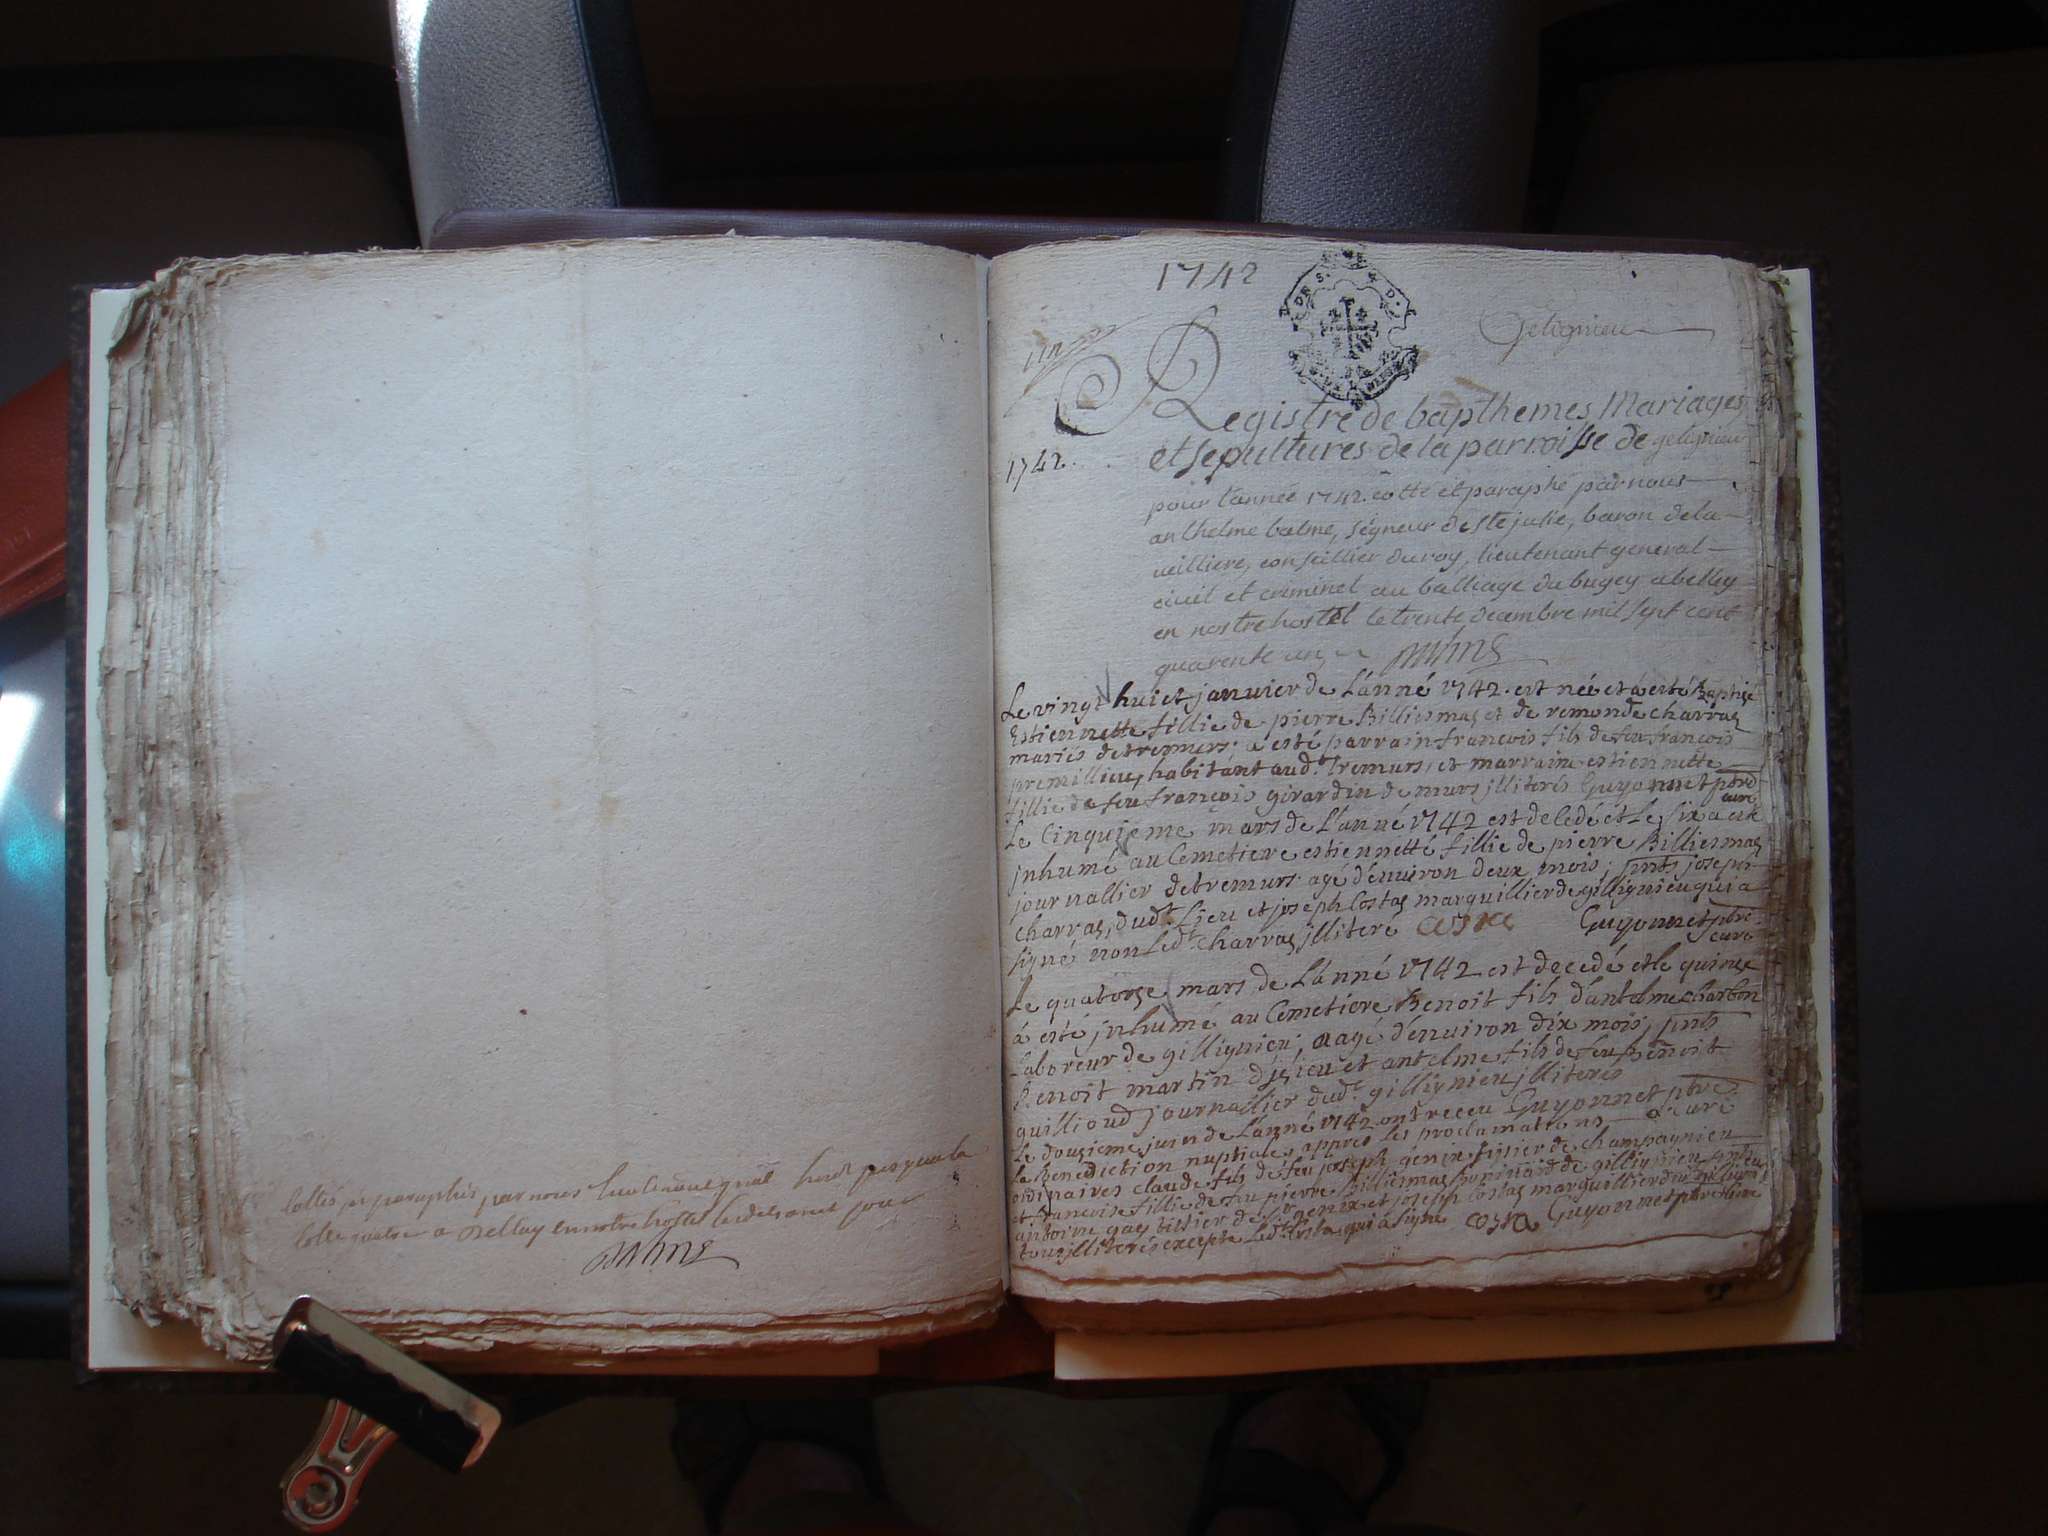 Cottés et paraphés par nous Lieutenant gnal
cotte quatre a Belley en notre hostel
Balme
1742
Gelignieu
un
Registre de bapthemes Mariages
1742.
et sepultures de la parroisse de gelignieu
pour l'année 1742. cotté et paraphé par nous
anthelme balme, seigneur de ste julie, baron de la
veilliere, conseillier du roy, lieutenant general
civil et criminel au balliage du bugey a belley
en nostre hostel le trente decembre mil sept cent
quarente un Balme
Le vingt huict janvier de L'anné 1742. est née et à esté Baptisé
Estiennette fillie de pierre Billiemaz et de remonde charraz
mariés de tremurs; a esté parrain françois fils de feu françois
premillieu, habitant aud.t Tremurs, et marraine estiennette
fillie de feu françois girardin de murs jlliterés Guyonnet ptre
curé
Le Cinquieme mars de L'anné 1742 est decedé et Le six a eté
jnhumé au Cemetiere estiennette fillie de pierre Billiemaz
journallier de tremurs agé d'environ deux mois; pnts joseph
charraz, dud.t Lieu et joseph Costaz marguillier de gillignieu qui a
signé non Led.t charraz jlliteré costa Guyonnet ptre
curé
Le quatorze mars de L'anné 1742 est decedé et le quinze
à esté jnhumé au Cemetiere Benoit fils d'antelme Charbon
Laboreur de gillignieu, aagé d'environ dix mois, pnts
Benoit martin d'jzieu et antelme fils de feu Benoit
guillioud journallier dud.t gillignieu jlliterés
Guyonnet ptre
curé
Le douzieme juin de L'anné 1742 ont receu
La Benediction nuptiale, appres les proclamations
ordinaires claude fils de feu joseph genin tissier de champagnieu
et francoise fillie de feu pierre Billiemaz de gillignieu
antoine gay tissier de S.t genix et joseph Costaz marguillier
tous jlliterés excepté Led.t Costa qui à signé costa Guyonnet ptre curé